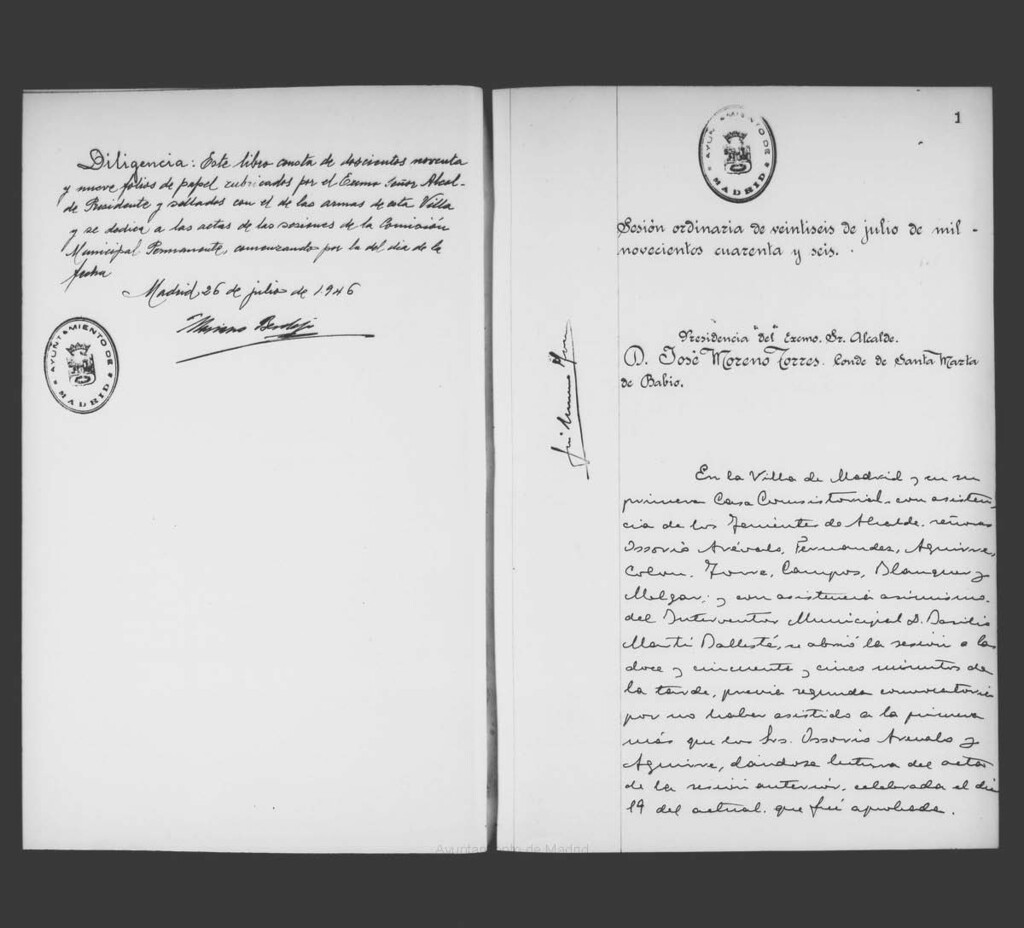 Diligencia: Este libro consta de doscientos noventa
y nueve folios de papel rubricados por el Excmo Señor Alcal-
de Presidente y sellados con el de las armas de esta Villa
y se dedica a las actas de las sesiones de la Comisión
Municipal Permanente, comenzando por la del dia de la
fecha
Madrid 26 de julio de 1946
Mariano Berdejo
AYUNTAMIENTO DE
MADRID
1
AYUNTAMIENTO DE
MADRID
Sesión ordinaria de veintiseis de julio de mil
novecientos cuarenta y seis.
Presidencia "del" Excmo. Sr. Alcalde.
D. José Moreno Torres. Conde de Santa Marta
de Babio.
En la Villa de Madrid y en su
primera Casa Consistorial, con asisten-
cia de los Tenientes de Alcalde, señores
Ossorio Arévalo, Fernandez, Aguirre,
Colon, Torre, Campos, Blanquer y
Melgar; y con asistencia asimismo
del Interventor Municipal D. Basilio
Martí Ballesté, se abrió la sesión a las
doce y cincuenta y cinco minutos de
la tarde, previa segunda convocatoria
por no haber asistido a la primera
más que los Srs. Ossorio Arevalo y
Aguirre, dándose lectura del acta
de la sesión anterior, celebrada el dia
19 del actual, que fué aprobada.
Ayuntamiento de Madrid